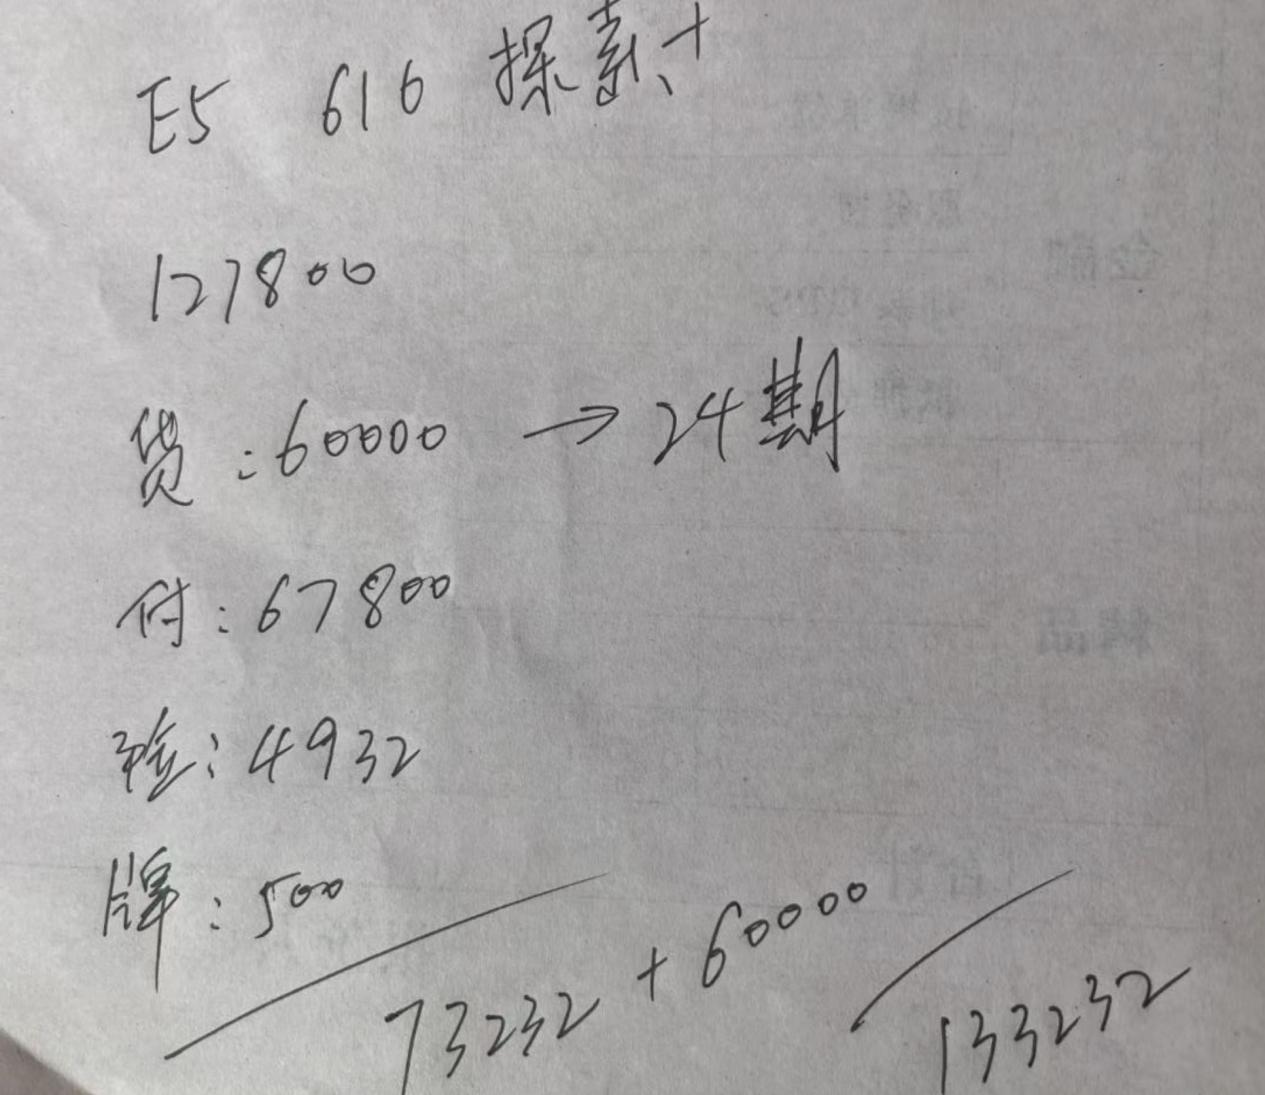 E5 616 探索+
127800
贷:60000 → 24期
付:67800
险:4932
牌:500
73232 + 60000
133232